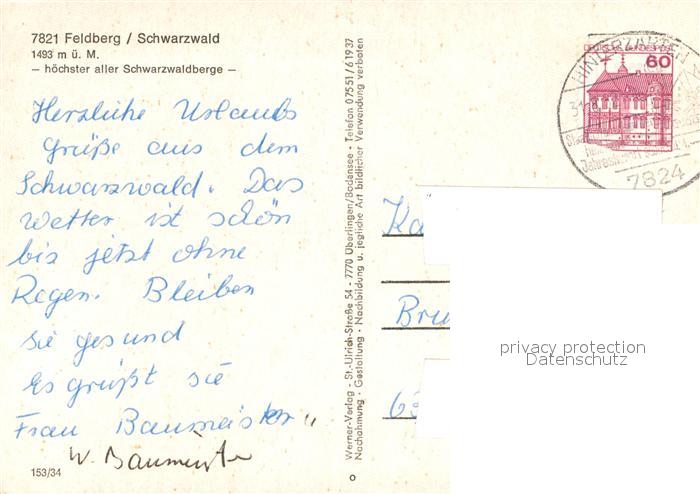 7821 Feldberg / Schwarzwald
1493 m ü. M.
– höchster aller Schwarzwaldberge –
Herzliche Urlaubs
grüße aus dem
Schwarzwald. Das
Wetter ist schön
bis jetzt ohne
Regen. Bleiben
sie gesund
Es grüßt sie
Frau Baumeister
W. Baumeister
153/34
Werner-Verlag - St.-Ulrich-Straße 54 - 7770 Überlingen/Bodensee - Telefon 07551/61937
Nachahmung · Gestaltung · Nachbildung u. jegliche Art bildlicher Verwendung verboten
DEUTSCHE BUNDESPOST
60
HINTERZARTEN
7824
Ka
Bru
privacy protection
Datenschutz